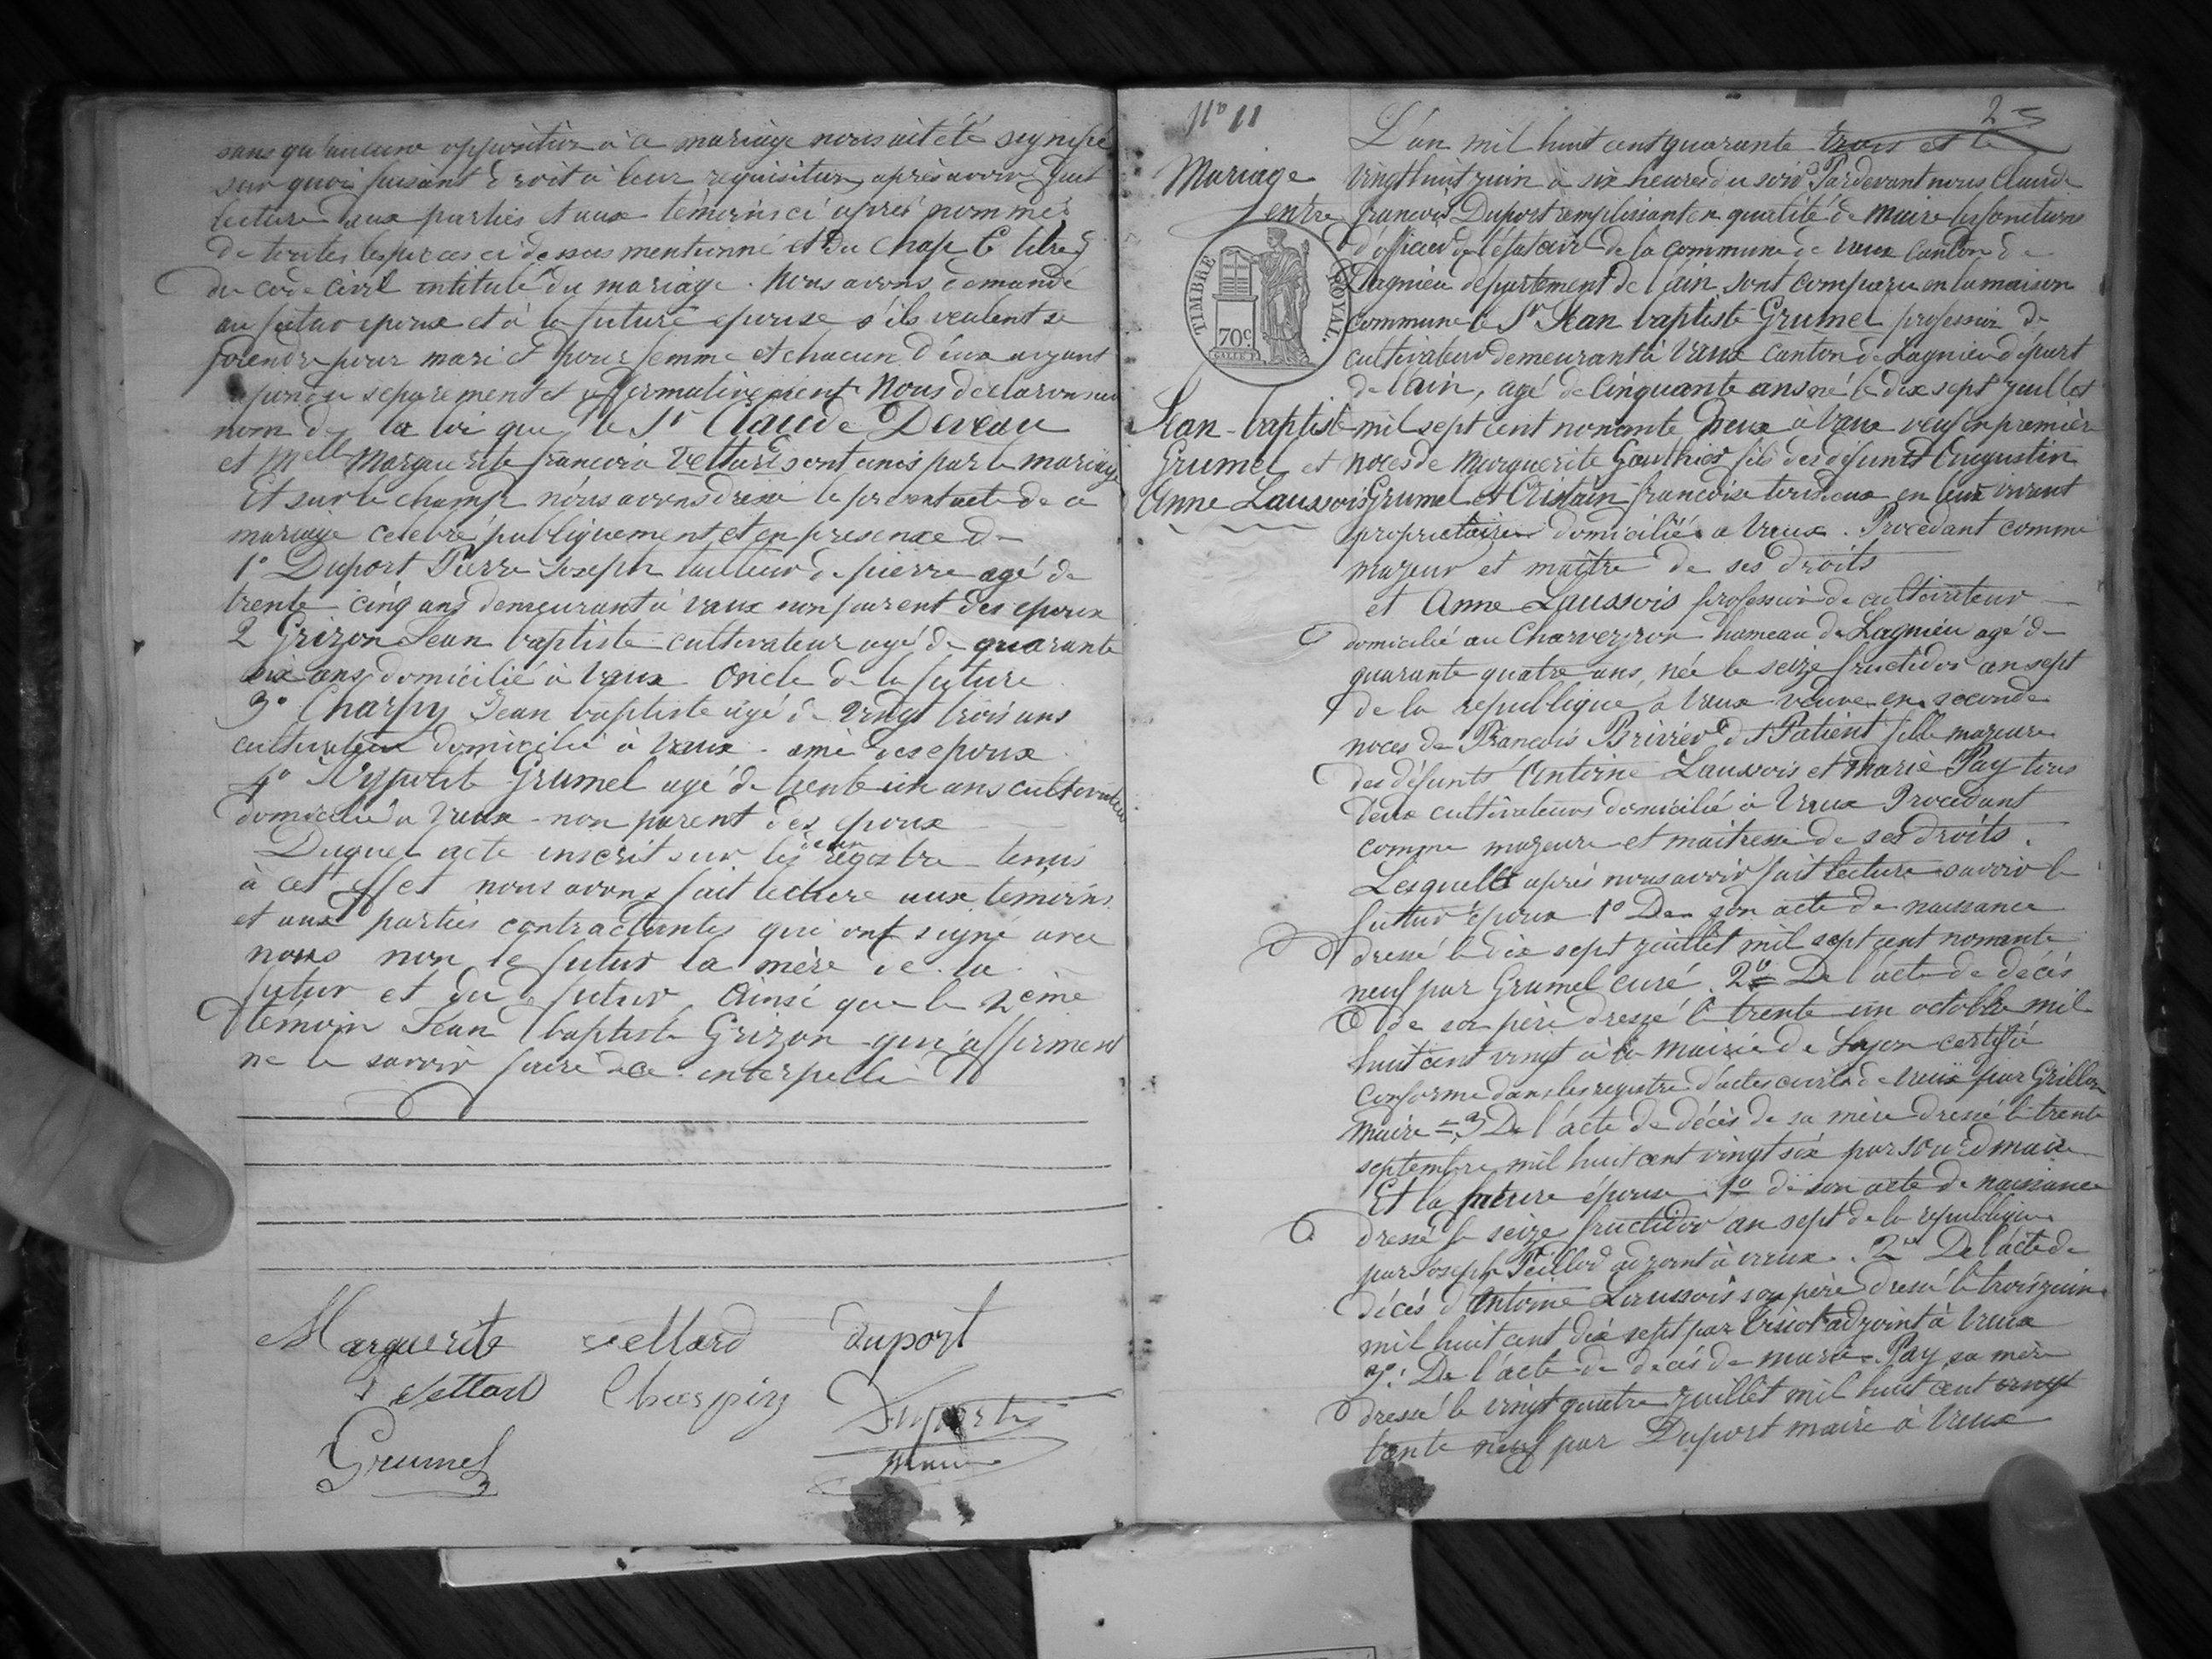 sans qu'aucune opposition à ce mariage nous ait été signifié
sur quoi faisant droit à leur requisition, après avoir fait
lecture aux parties et aux temoins ci après nommés
de toutes les pieces ci dessus mentionné et du chap 6 titre 5
du code civil intitulé du mariage. Nous avons demandé
au futur epoux et à la future epouse s'ils veulent se
prendre pour mari et pour femme et chacun d'eux ayant
repondu separement et affirmativement Nous declarons au
nom de la loi que le Sr Claude Deveau
et Melle Marguerite francoise sont unis par le mariage
Et sur le champ nous avons dressé le present acte de ce
mariage celebré publiquement et en presence de
1° Duport Pierre Joseph tailleur de pierre agé de
trente cinq ans demeurant à vaux non parent des epoux
2 Grizon Jean baptiste cultivateur agé de quarante
six ans domicilié à Vaux oncle de la future
3° Charpy Jean baptiste agé de vingt trois ans
cultivateur domicilié à Vaux - ami des epoux
4° Hypolite Grumel agé de trente un ans cultivateur
domicilié à Vaux - non parent des epoux
Duquel acte inscrit sur les deux registre tenus
à cet effet nous avons fait lecture aux temoins
et aux parties contractantes qui ont signé avec
nous non le futur la mère de la
futur et du futur, Ainsi que le 2eme
temoin Jean baptiste Grizon qui affirment
ne le savoir faire de ce interpellé
Marguerite vettard duport
vettard Charpiy Duport
Grumel Maire
N° 11
23
Mariage
entre
TIMBRE ROYAL.
70c.
Jean-baptiste
Grumel et
Anne Laussois
L'an mil huit cent quarante trois et le
vingt huit juin à six heures du soir Pardevant nous Claude
francois Duport remplissant en qualité de Maire les fonctions
d'officier de l'état civil de la commune de Vaux Canton de
Lagnieu département de l'ain, sont comparu en la maison
commune le Sr Jean baptiste Grumel profession de
cultivateur demeurant à Vaux canton de Lagnieu départ
de l'ain, agé de Cinquante ans né le dix sept juillet
mil sept cent nonante à Vaux veuf en première
noces de Marguerite Gauthier fils des défunts Augustin
Grumel et francoise tous deux en leur vivant
proprietaires domiciliés a Vaux. Procédant comme
majeur et maître de ses droits
et Anne Laussois profession de cultivateur
domicilié au Charveyron hameau de Lagnieu agé de
quarante quatre ans, née le seize fructidor an sept
de la republique à Vaux veuve en seconde
noces de Francois dt Patient fille majeure
des défunts Antoine Laussois et Marie Pay tous
deux cultivateurs domicilié à Vaux Procedant
comme majeure et maitresse de ses droits.
Lesquels après nous avoir fait lecture savoir le
futur époux 1° De son acte de naissance
dressé le dix sept juillet mil sept cent nonante
neuf par Grumel curé. 2° De l'acte de décès
de son père dressé le trente un octobre mil
huit cent vingt à la Mairie de certifié
conforme dans les registre d'actes civils de Vaux par Grillon
Maire = 3 De l'acte de décès de sa mère dressé le trente
septembre mil huit cent vingt six par maire
Et la future épouse 1° de son acte de naissance
dressé le seize fructidor an sept de la republique
par Joseph adjoint à vaux. 2° De l'acte de
décès d'Antoine Laussois son père dressé le trois juin
mil huit cent dix sept par adjoint à Vaux
3°. De l'acte de decès de marie Pay sa mère
dressé le vingt quatre juillet mil huit cent vingt
trente neuf par Duport maire à Vaux